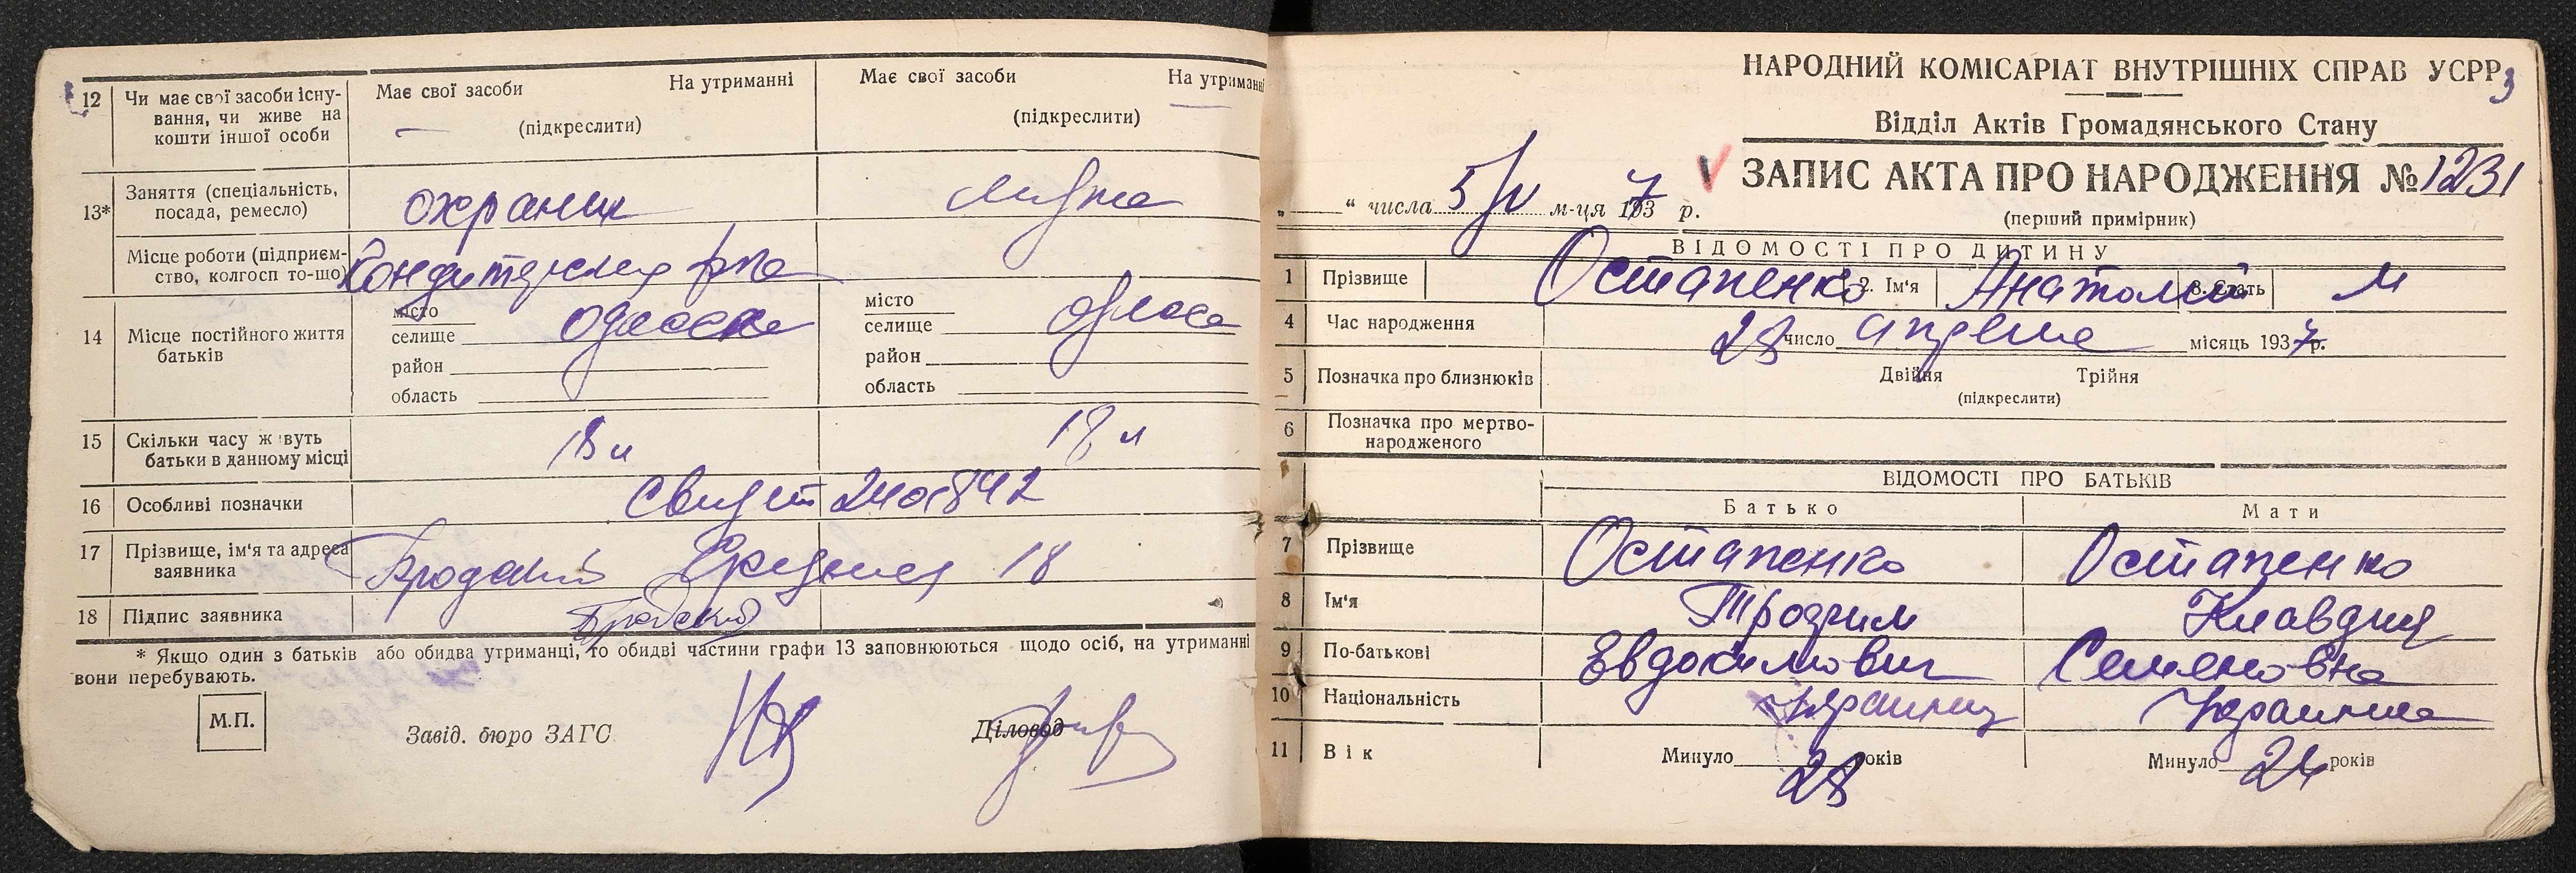 12 Чи має свої засоби існу-
вання, чи живе на
кошти іншої особи
Має свої засоби На утриманні
(підкреслити)
Має свої засоби На утриманні
(підкреслити)
13* Заняття (спеціальність,
посада, ремесло)
охраник
Місце роботи (підприєм-
ство, колгосп то-що)
14 Місце постійного життя
батьків
місто
селище Одесса
район
область
місто
селище Одеса
район
область
15 Скільки часу живуть
батьки в данному місці
18 л 18 л
16 Особливі позначки
17 Прізвище, ім'я та адреса
заявника
Бродский 18
18 Підпис заявника
Бродский
* Якщо один з батьків або обидва утриманці, то обидві частини графи 13 заповнюються щодо осіб, на утриманні
вони перебувають.
М.П.
Завід. бюро ЗАГС Діловод
НАРОДНИЙ КОМІСАРІАТ ВНУТРІШНІХ СПРАВ УСРР
3
Відділ Актів Громадянського Стану
V ЗАПИС АКТА ПРО НАРОДЖЕННЯ № 1231
„ “ числа 5/V м-ця 1937 р.
(перший примірник)
ВІДОМОСТІ ПРО ДИТИНУ
1 Прізвище Остапенко 2. Ім'я Анатолий 3. Стать М
4 Час народження 28 число апреля місяць 1937 р.
5 Позначка про близнюків Двійня Трійня
(підкреслити)
6 Позначка про мертво-
народженого
ВІДОМОСТІ ПРО БАТЬКІВ
Батько Мати
7 Прізвище Остапенко Остапенко
8 Ім'я Трофим Клавдия
9 По-батькові Евдокимович Семеновна
10 Національність Украинец Украинка
11 Вік Минуло 28 років Минуло 24 років